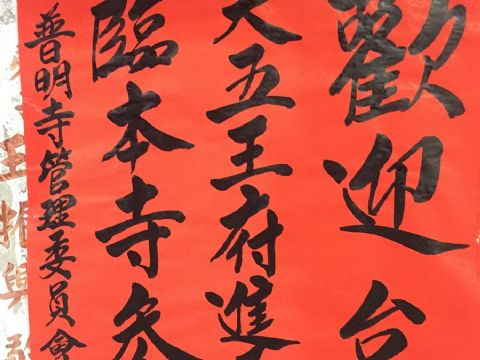 歡迎台
天五王府進
臨本寺參
普明寺管理委員會